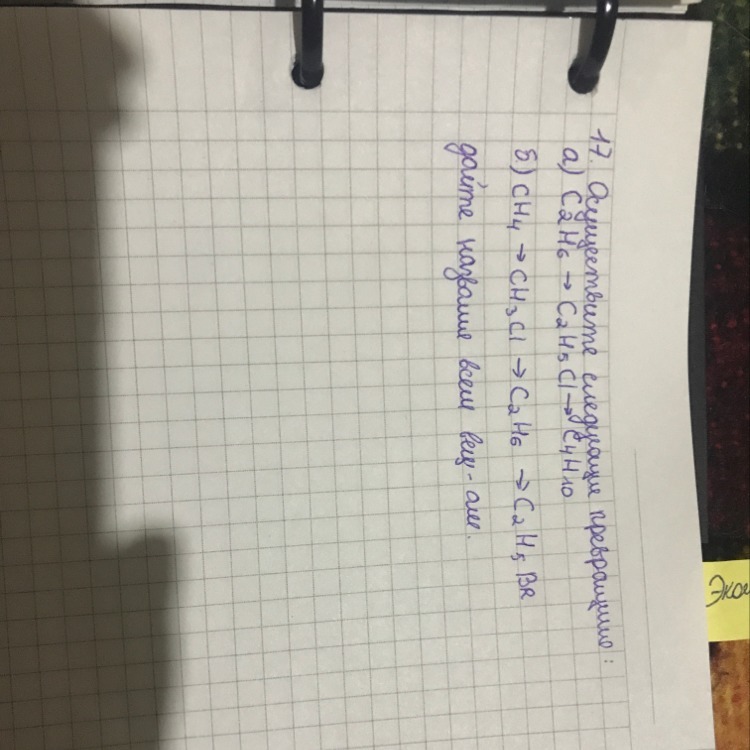 17. Осуществите следующие превращение:
а) C₂H₆ → C₂H₅Cl → C₄H₁₀
б) CH₄ → CH₃Cl → C₂H₆ → C₂H₅Br
дайте название всем вещ-ам.